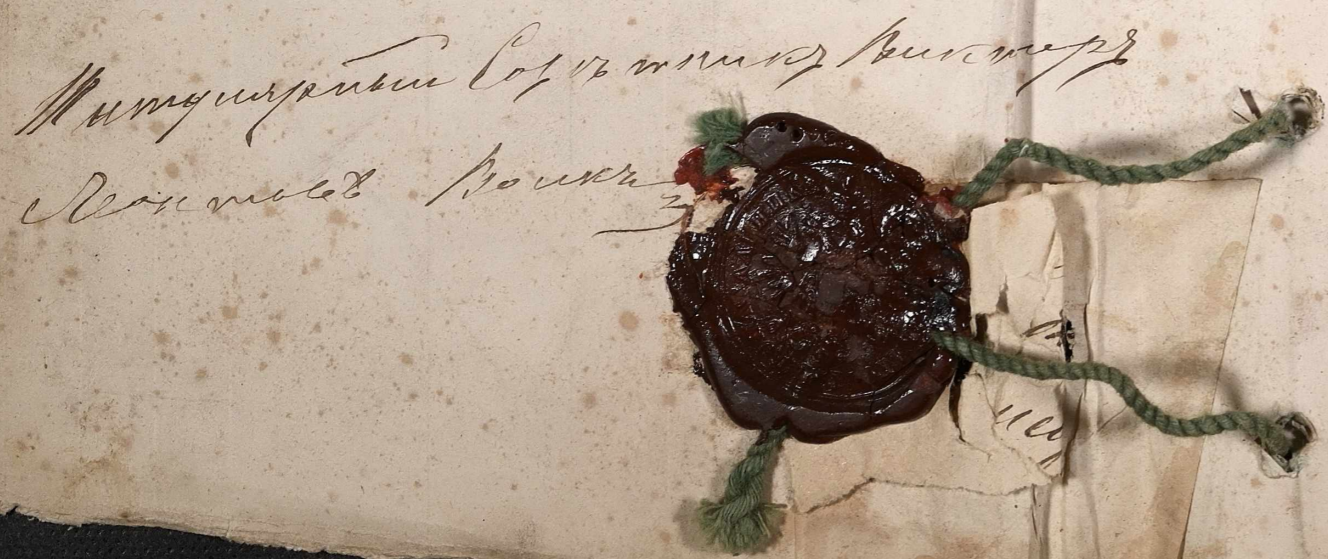 Титулярный Совѣтникъ Викторъ
Леонтьевъ Воикъ